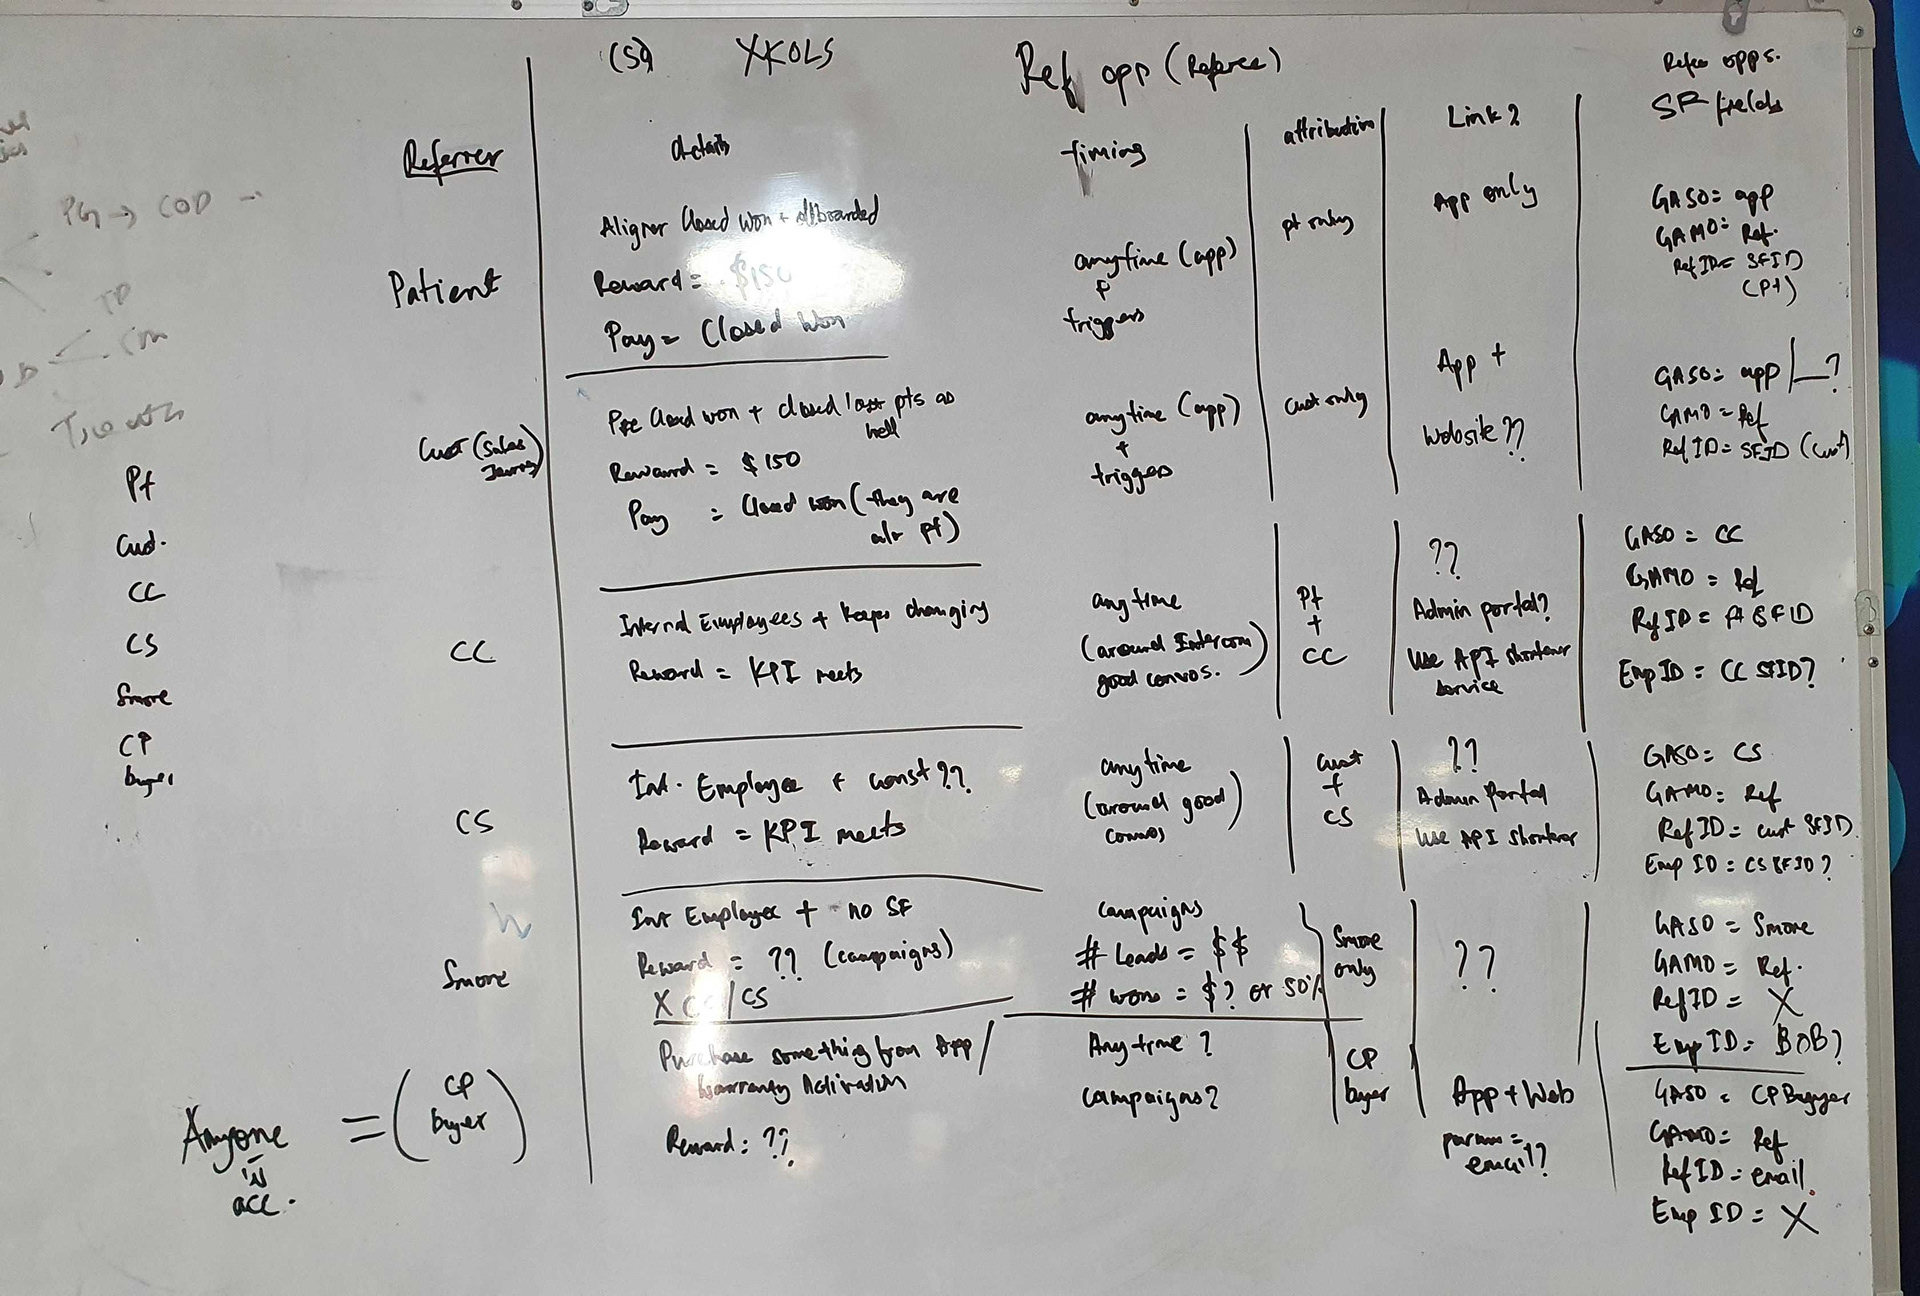 XKOLS
Ref opp (Referee)
Refer opps.
SF fields
Referrer
details
timing
attribution
Link?
PG → COD
Patient
Aligner Closed won + offboarded
Reward = $150
Pay = Closed Won
anytime (app)
+
triggers
pt only
App only
GASO= app
GAMO= Ref.
Ref ID= SFID
(Pt)
Cust (Sales
Journey)
closed won + closed lost pts as
well
Reward = $150
Pay = Closed won (they are
pt)
anytime (app)
+
triggers
cust only
App +
Website??
GASO= app/__?
GAMO = Ref
Ref ID = SFID (Cust)
Pt
Cust.
CC
CS
Smore
CP
buyer
CC
Internal Employees + keeps changing
Reward = KPI meets
anytime
(around Intercom
good convos.)
Pt
+
CC
??
Admin portal?
Use API shortener
service
GASO = CC
GAMO = Ref
Ref ID = Pt SFID
Emp ID = CC SFID?
CS
Int. Employee + const??
Reward = KPI meets
anytime
(around good)
convos
cust
+
CS
??
Admin Portal
Use API Shortener
GASO= CS
GAMO= Ref
Ref ID= cust SFID
Emp ID = CS SFID?
Smore
Int Employee + no SF
Reward = ?? (campaigns)
X CC/CS
campaigns
# Leads = $$
# won = $? or 50%
Smore
only
??
GASO = Smore
GAMO = Ref.
Ref ID = X
Emp ID= BOB?
Anyone
in
acc.
= (CP
buyer)
Purchase something from App/
Warranty Activation
Reward: ??
Anytime?
campaigns?
CP
buyer
App + Web
param =
email?
GASO = CP Buyer
GAMO= Ref
Ref ID = email
Emp ID = X